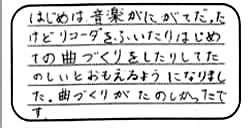 はじめは、音楽がにがてだった
けどリコーダをふいたりはじめ
ての曲づくりをしたりしてた
のしいとおもえるようになりまし
た。曲づくりがたのしかったで
す